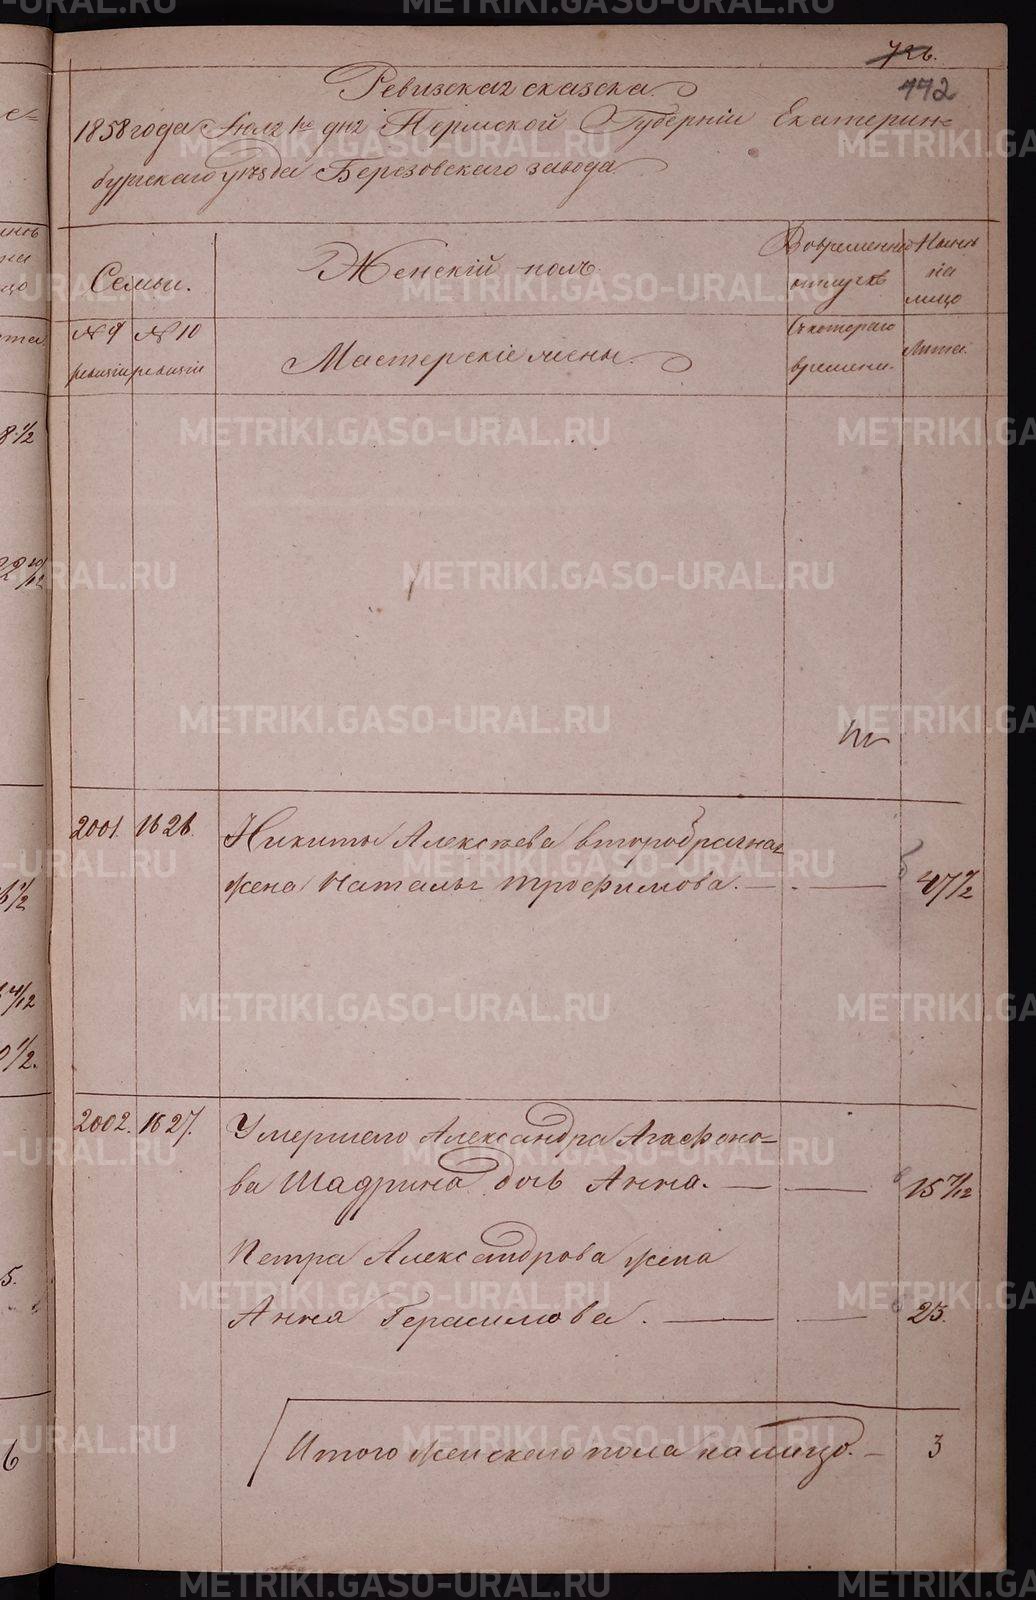 726.
172
Ревизская сказка
1858 года Июля 1го дня Пермской Губерніи Екатерин=
бургскаго уѣзда Березовскаго завода
Семьи.
Женскій полъ
Во временной отлучкѣ
Нынѣ на лицо
№ 9 ревизіи
№ 10 ревизіи
Мастерскіе жены.
Съ котораго времени.
Лѣта.
2001. 1626. Никиты Алексѣева второбрачная
жена Наталья Трофимова. — . — 47 1/2
2002. 1627. Умершего Александра Агафоно=
ва Шадрина дочь Анна. — — 15 7/12
Петра Александрова жена
Анна Герасимова. — — 25.
Итого женскаго пола на лицо. — 3
METRIKI.GASO-URAL.RU